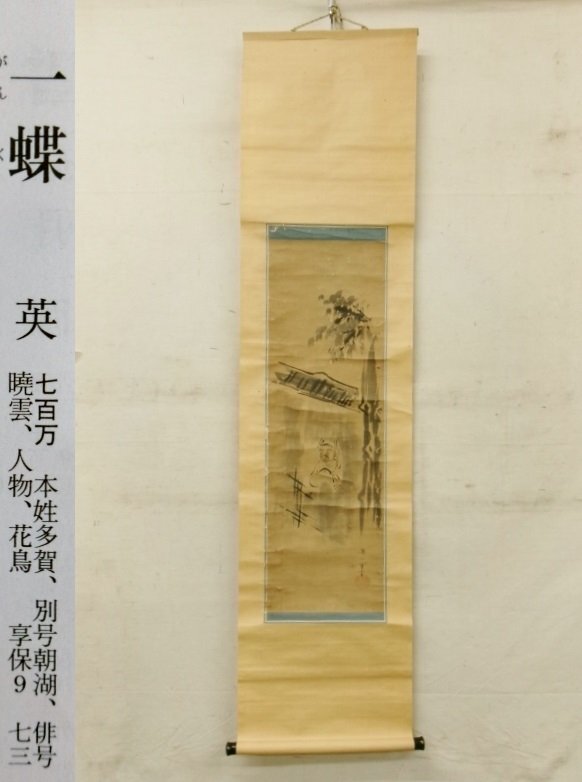 一蝶 英
七百万 本姓多賀、別号朝湖、俳号
曉雲、人物、花鳥 享保9 七三